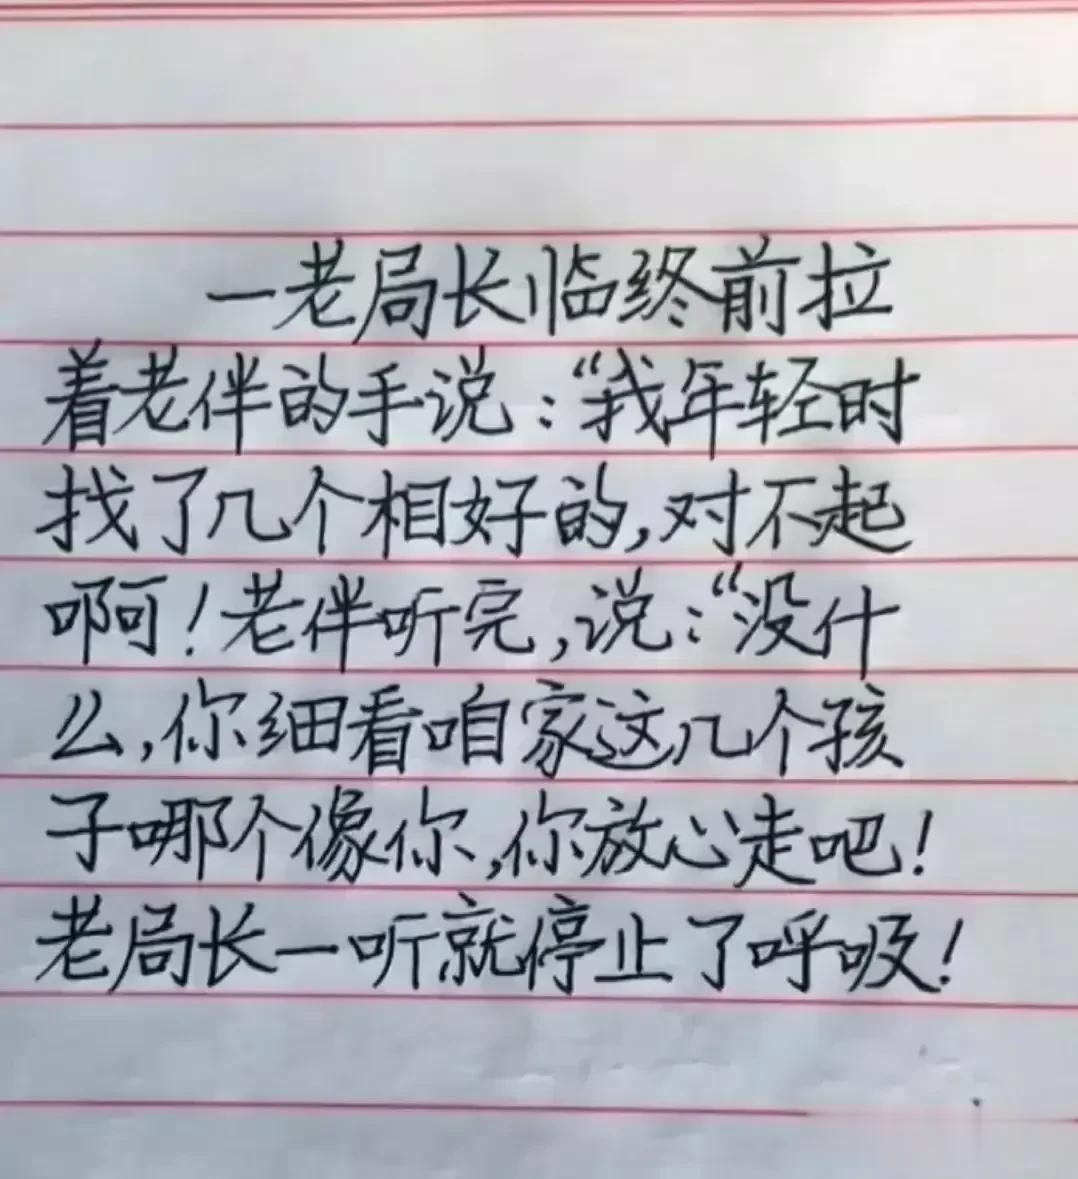 一老局长临终前拉
着老伴的手说：“我年轻时
找了几个相好的，对不起
啊！老伴听完，说：“没什
么，你细看咱家这几个孩
子哪个像你，你放心走吧！
老局长一听就停止了呼吸！